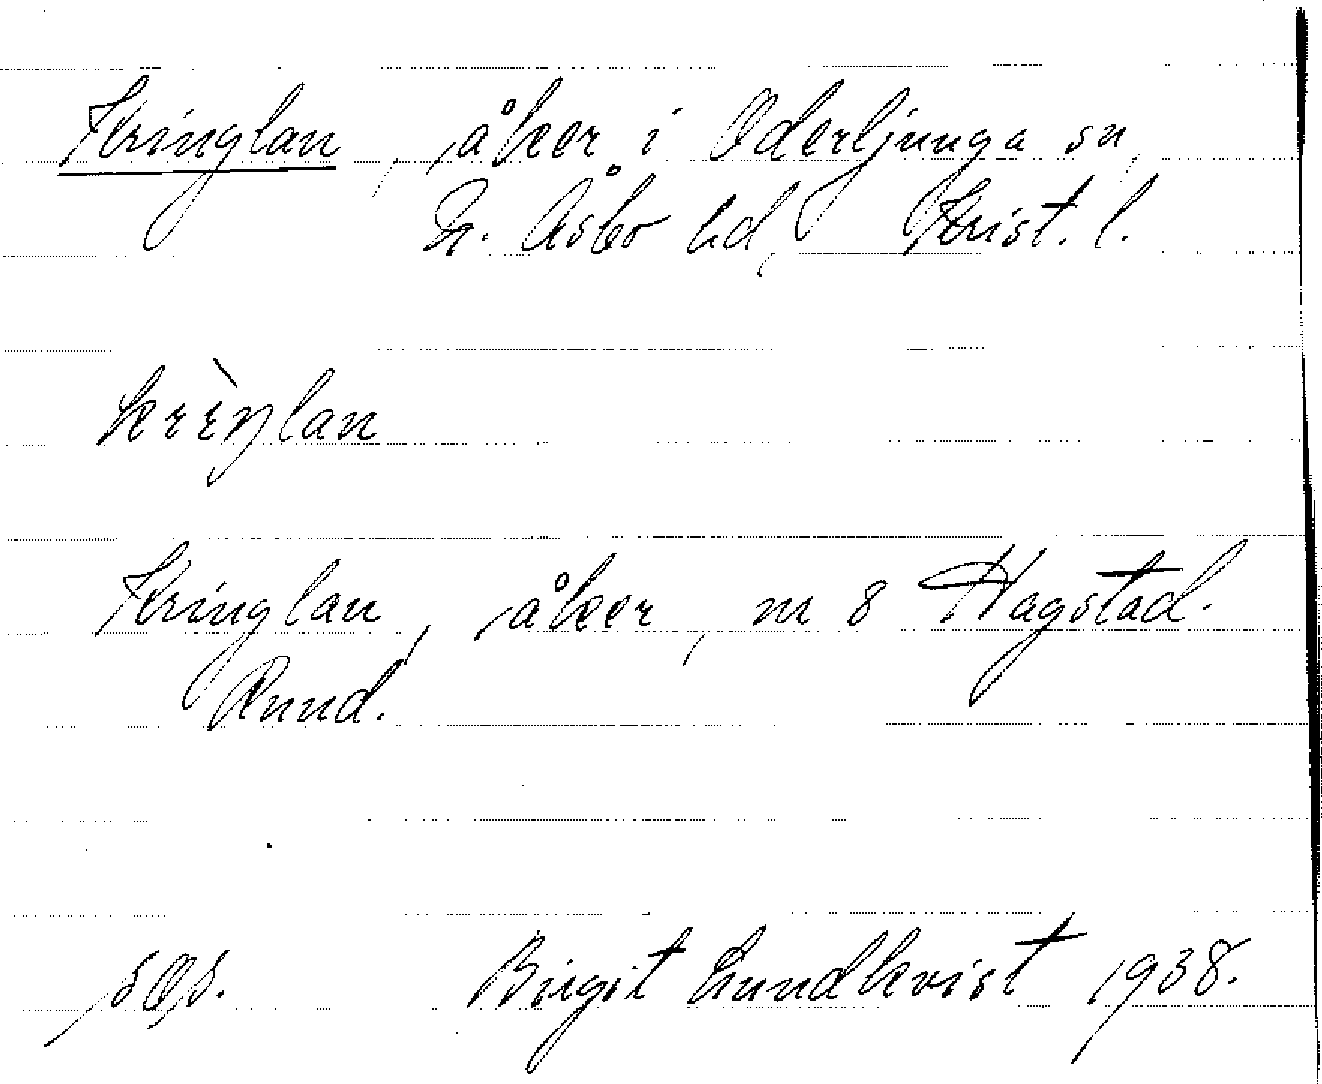 Kringlan, åker i Oderljunga sn,
N. Åsbo hd, Krist. l.
krìŋlan
Kringlan, åker, nr 8 Hagstad.
Rund.
Birgit Lundkvist 1938.